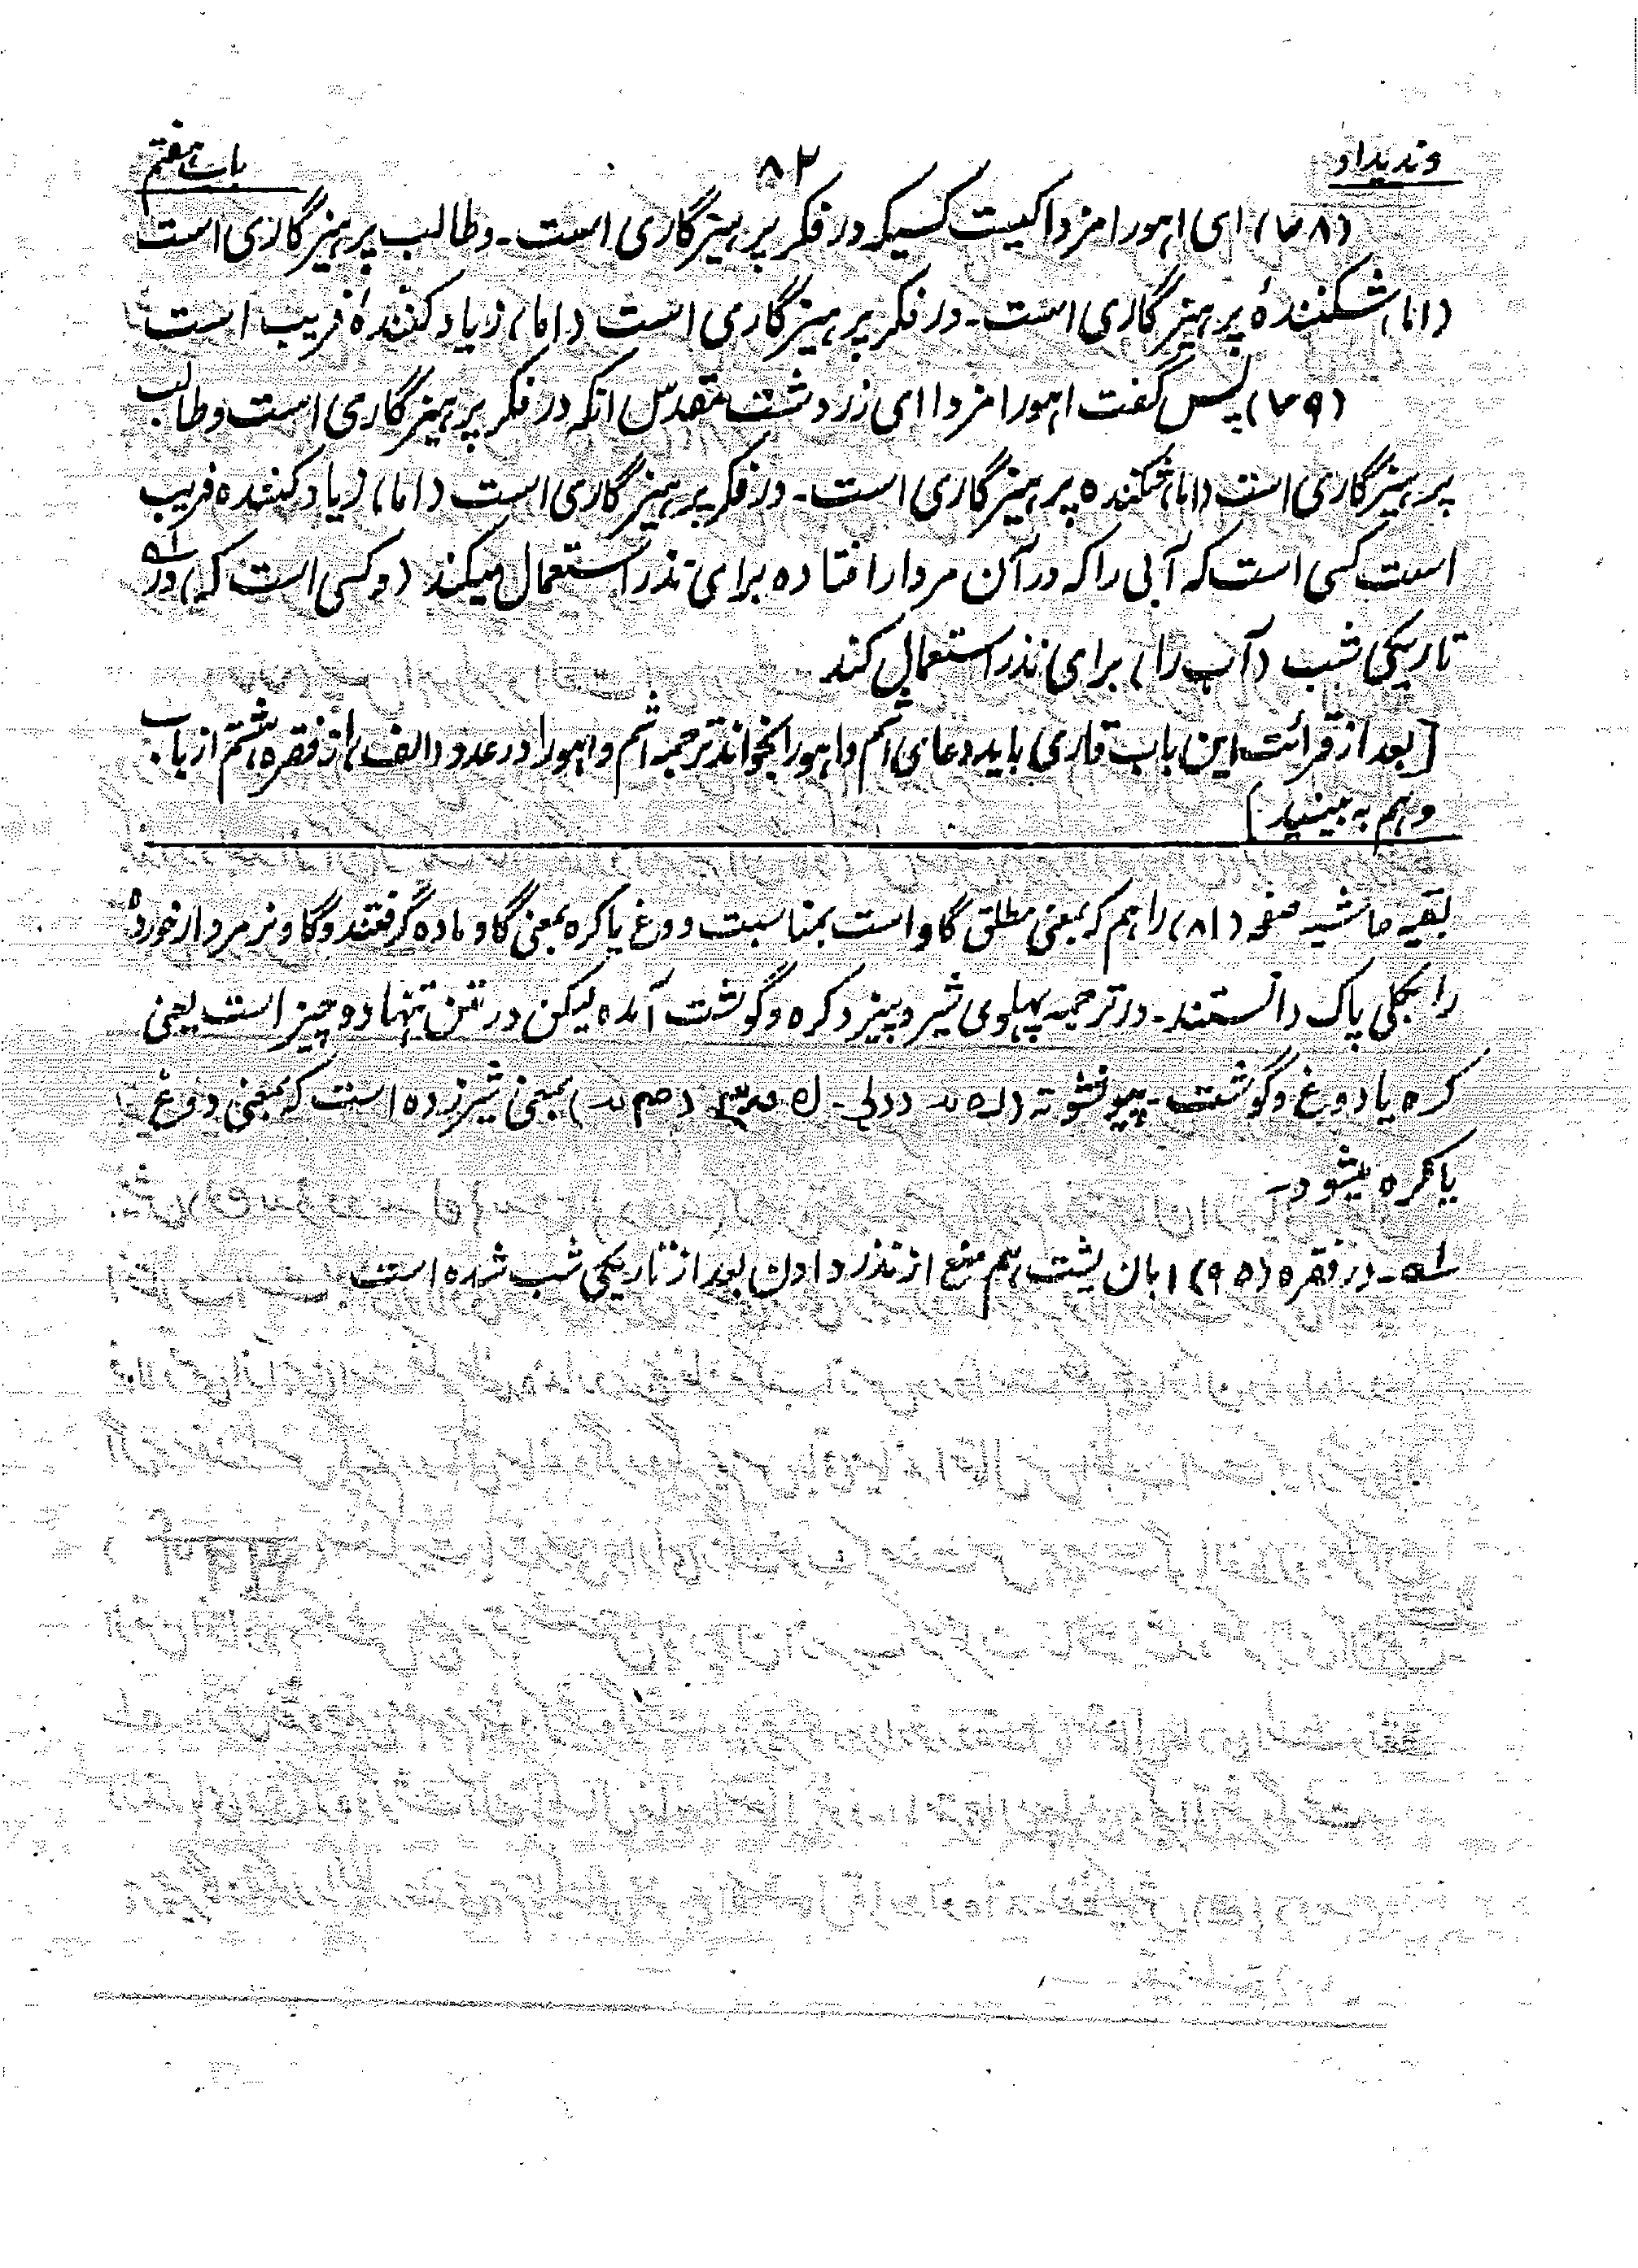 وندیداد ۸۲ باب هفتم
(۷۸) ای اهورامزدا کیست کسیکه در فکر پرهیزگاری است ـ وطالب پرهیزگاری است
(اما) شکنندهٔ پرهیزگاری است ـ در فکر پرهیزگاری است (اما) زیاد کنندهٔ فریب است
(۷۹) پس گفت اهورامزدا ای زردشت مقدس آنکه در فکر پرهیزگاری است وطالب
پرهیزگاری است (اما) شکننده پرهیزگاری است ـ در فکر پرهیزگاری است (اما) زیاد کننده فریب
است کسی است که آبی را که در آن مردار افتاده برای نذر استعمال میکند (و کسی است که) در
تاریکی شب (آب را) برای نذر استعمال کند
[بعد از قرائت این باب قاری باید دعای اشم واهو را بخواند ترجمه اشم واهو را در عدد (الف) از فقره هشتم از باب
دهم به بینید]
بقیه حاشیه صفحه (۸۱) را هم که بمعنی مطلق گاو است بمناسبت دوغ یا کره بمعنی گاو ماده گرفتند و گاو نر مردار خورده
را بکلی پاک دانستند ـ در ترجمه پهلوی شیر و پنیر و کره و گوشت آمده لیکن در متن تنها دو چیز است یعنی
کره یا دوغ و گوشت ـ پیوفشوته بمعنی شیر زده است که بمعنی دوغ
یا کره میشود ـ
له ـ در فقره (۹۵) ابان یشت هم منع از نذر دادن بعد از تاریکی شب شده است